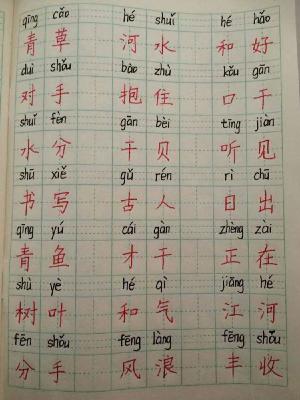 qīng cǎo hé shuǐ hé hǎo
青草 河水 和好
duì shǒu bào zhù kǒu gān
对手 抱住 口干
shuǐ fèn gān bèi tīng jiàn
水分 干贝 听见
shū xiě gǔ rén rì chū
书写 古人 日出
qīng yú cái gàn zhèng zài
青鱼 才干 正在
shù yè hé qì jiāng hé
树叶 和气 江河
fēn shǒu fēng làng fēng shōu
分手 风浪 丰收